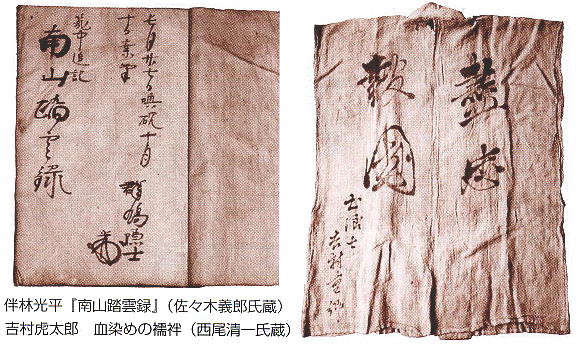 七月廿七日 硯十月
中追記
南山踏雲録
盡忠
報國
土浪士
吉村重
伴林光平『南山踏雲録』（佐々木義郎氏蔵）
吉村虎太郎　血染めの襦袢（西尾清一氏蔵）